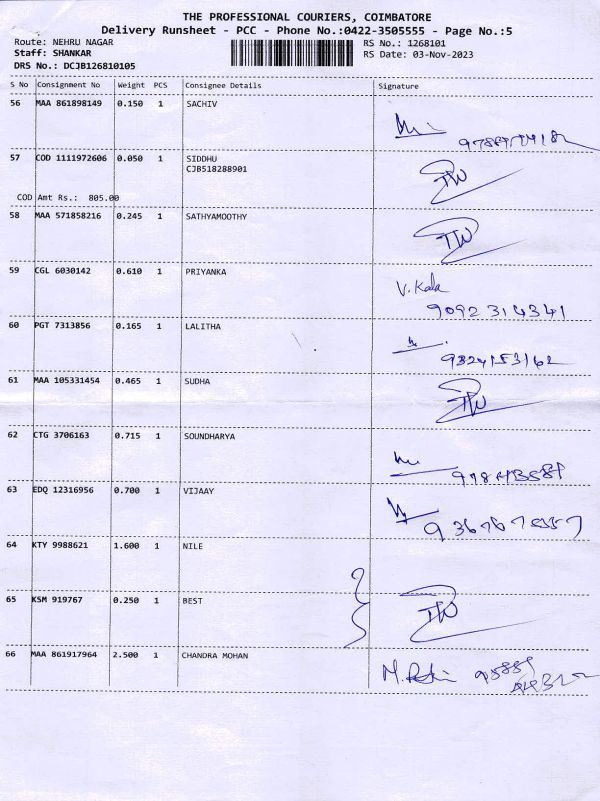 THE PROFESSIONAL COURIERS, COIMBATORE
Delivery Runsheet - PCC - Phone No.:0422-3505555 - Page No.:5
Route: NEHRU NAGAR RS No.: 1268101
Staff: SHANKAR RS Date: 03-Nov-2023
DRS No.: DCJB126810105
S No Consignment No Weight PCS Consignee Details Signature
56 MAA 861898149 0.150 1 SACHIV
57 COD 1111972606 0.050 1 SIDDHU
CJB518288901
COD Amt Rs.: 805.00
58 MAA 571858216 0.245 1 SATHYAMOOTHY
59 CGL 6030142 0.610 1 PRIYANKA V. Kala
9092 314341
60 PGT 7313856 0.165 1 LALITHA
61 MAA 105331454 0.465 1 SUDHA
62 CTG 3706163 0.715 1 SOUNDHARYA
63 EDQ 12316956 0.700 1 VIJAAY
64 KTY 9988621 1.600 1 NILE
65 KSM 919767 0.250 1 BEST
66 MAA 861917964 2.500 1 CHANDRA MOHAN